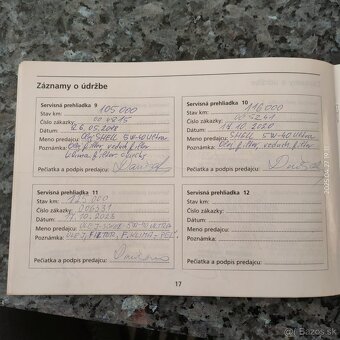 Záznamy o údržbe
Servisná prehliadka 9
Stav km: 105000
Číslo zákazky: 004815
Dátum: 26.05.2018
Meno predajcu: Olej SHELL 5W-40 Ultra
Poznámka: Olej. filter, vzduch. filter
klima. filter
Pečiatka a podpis predajcu:
Servisná prehliadka 10
Stav km: 116000
Číslo zákazky: 005241
Dátum: 17.10.2020
Meno predajcu: SHELL 5W-40 Ultra
Poznámka: Olej. filter, vzduch. filter
Pečiatka a podpis predajcu:
Servisná prehliadka 11
Stav km: 125000
Číslo zákazky: 006331
Dátum: 17.10.2023
Meno predajcu: OLEJ 5W-40 ULTRA
Poznámka: OLEJ. FILTER, F. KLIMA - PEĽ.
Pečiatka a podpis predajcu:
Servisná prehliadka 12
Stav km:
Číslo zákazky:
Dátum:
Meno predajcu:
Poznámka:
Pečiatka a podpis predajcu:
17
bazos.sk